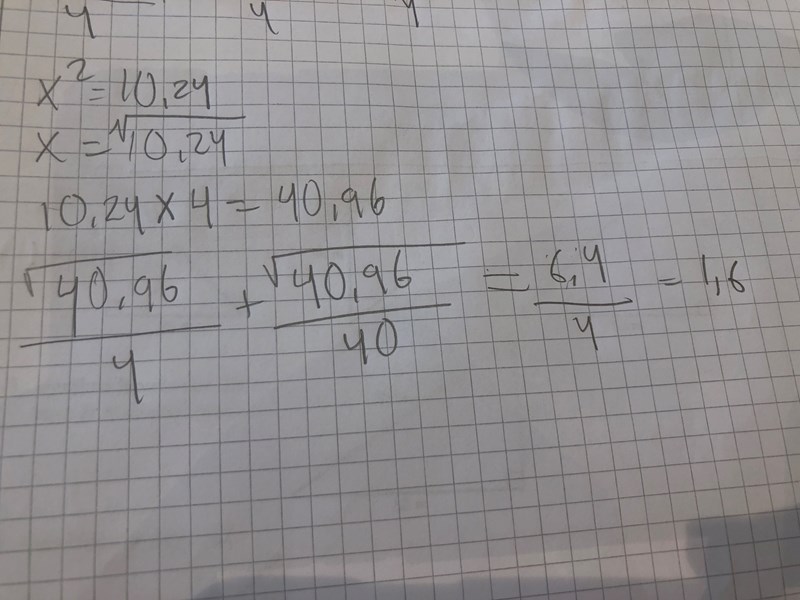 4 4 4
x² = 10,24
x = √10,24
10,24 x 4 = 40,96
√40,96/4 + √40,96/40 = 6,4/4 = 1,6